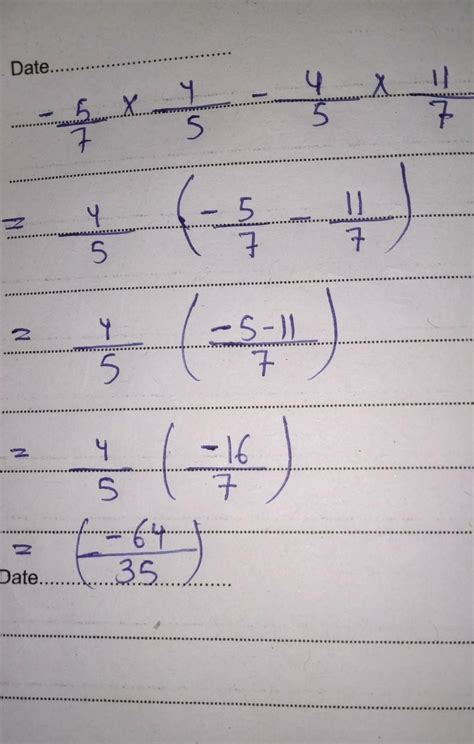 Date
- 5/7 × 4/5 - 4/5 × 11/7
= 4/5 (-5/7 - 11/7)
= 4/5 (-5-11/7)
= 4/5 (-16/7)
= (-64/35)
Date